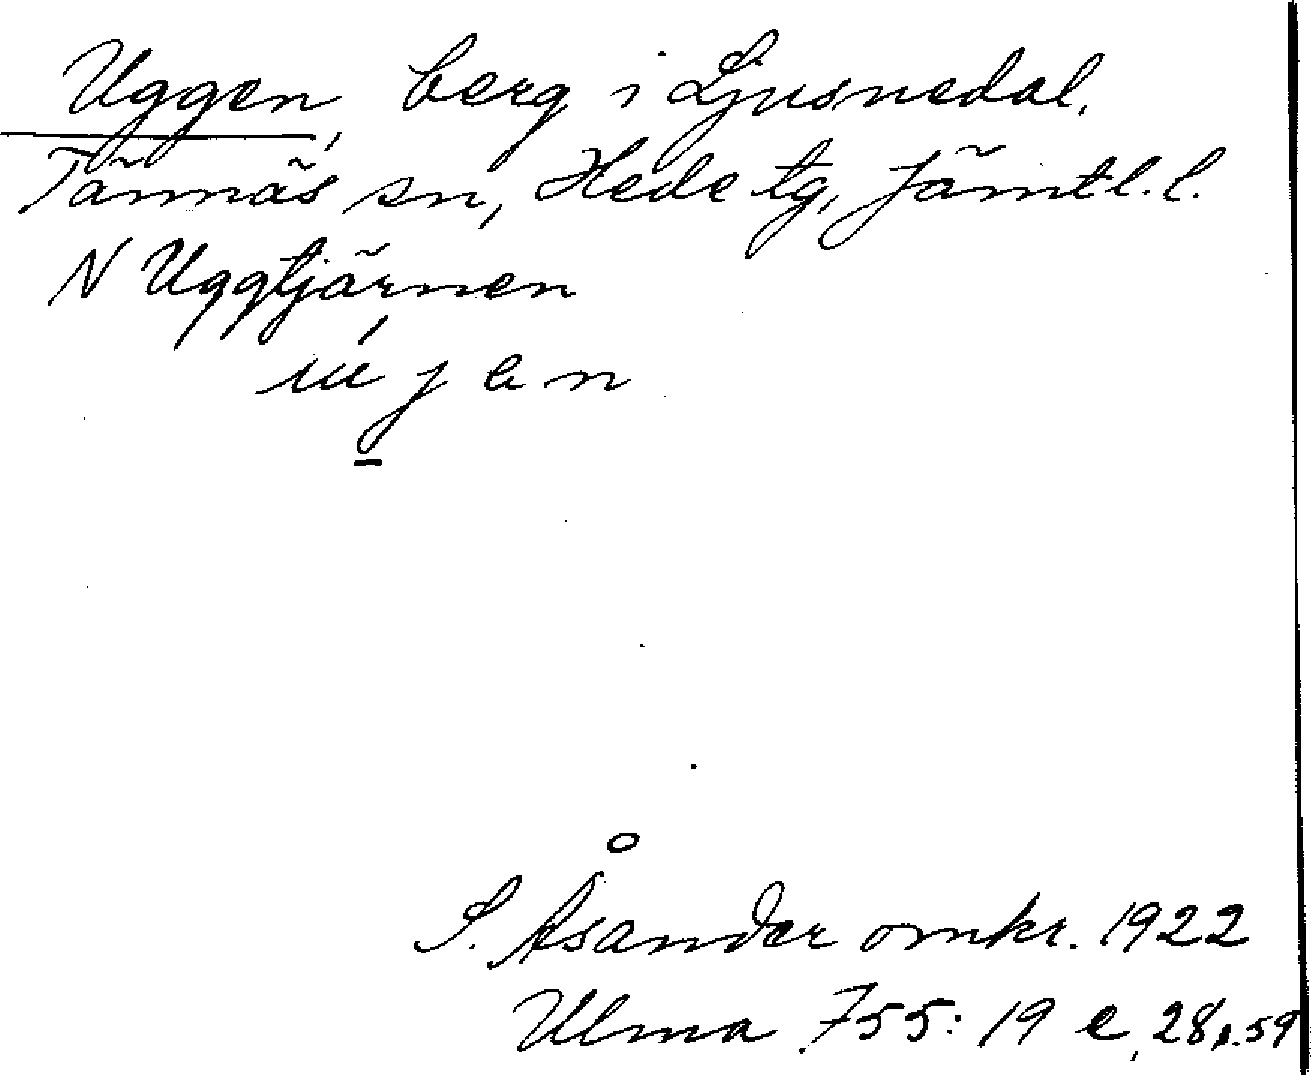 Uggen, berg i Ljusnedal,
Tännäs sn, Hede tg, Jämtl. l.
N Uggtjärnen
S. Åsander omkr. 1922
Ulma 755: 19 e, 28 s. 59